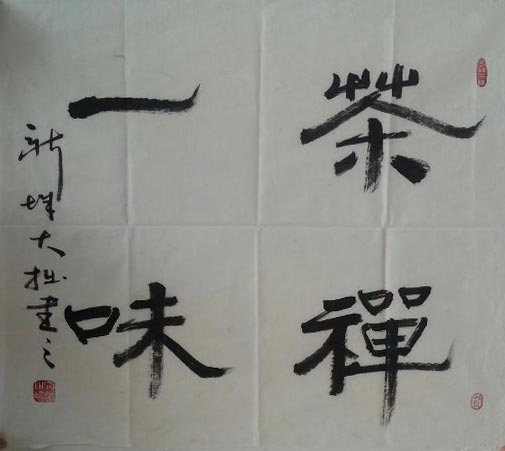 茶禪
一味
新城大拙書之